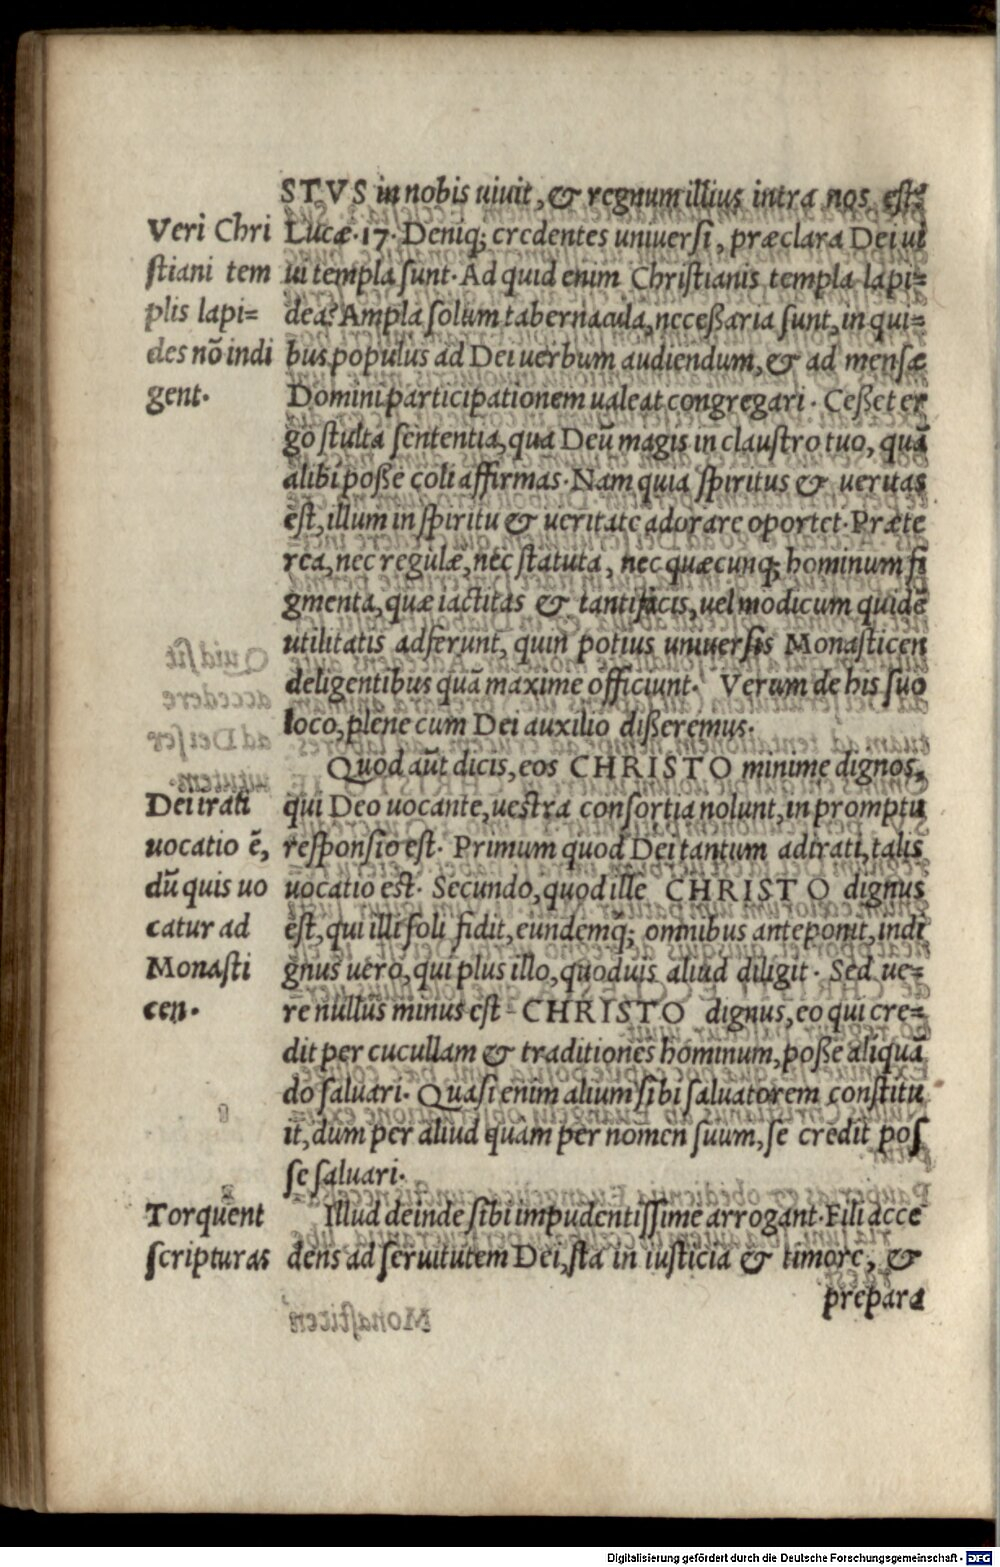 STVS in nobis uiuit, & regnum illius intra nos est?
Lucæ. 17. Deniq; credentes uniuersi, præclara Dei ui
ui templa sunt. Ad quid enim Christianis templa lapi=
dea? Ampla solum tabernacula, necessaria sunt, in qui=
bus populus ad Dei uerbum audiendum, & ad mensæ
Domini participationem ualeat congregari. Cesset er
go stulta sententia, qua Deū magis in claustro tuo, quā
alibi posse coli affirmas. Nam quia spiritus & ueritas
est, illum in spiritu & ueritate adorare oportet. Præte
rea, nec regulæ, nec statuta, nec quæcunq; hominum fi
gmenta, quæ iactitas & tantifacis, uel modicum quidē
utilitatis adferunt, quin potius uniuersis Monasticen
deligentibus quā maxime officiunt. Verum de his suo
loco, plene cum Dei auxilio disseremus.
Quod aūt dicis, eos CHRISTO minime dignos,
qui Deo uocante, uestra consortia nolunt, in promptu
responsio est. Primum quod Dei tantum adirati, talis
uocatio est. Secundo, quod ille CHRISTO dignus
est, qui illi soli fidit, eundemq; omnibus anteponit, indi
gnus uero, qui plus illo, quoduis aliud diligit. Sed ue=
re nullus minus est CHRISTO dignus, eo qui cre=
dit per cucullam & traditiones hominum, posse aliquā
do saluari. Quasi enim alium sibi saluatorem constitu
it, dum per aliud quam per nomen suum, se credit pos
se saluari.
Illud deinde sibi impudentissime arrogant. Fili acce
dens ad seruitutem Dei, sta in iusticia & timore, &
prepara
Veri Chri
stiani tem
plis lapi=
des nō indi
gent.
Dei irati
uocatio ē,
dū quis uo
catur ad
Monasti
cen.
Torquent
scripturas
Digitalisierung gefördert durch die Deutsche Forschungsgemeinschaft - DFG